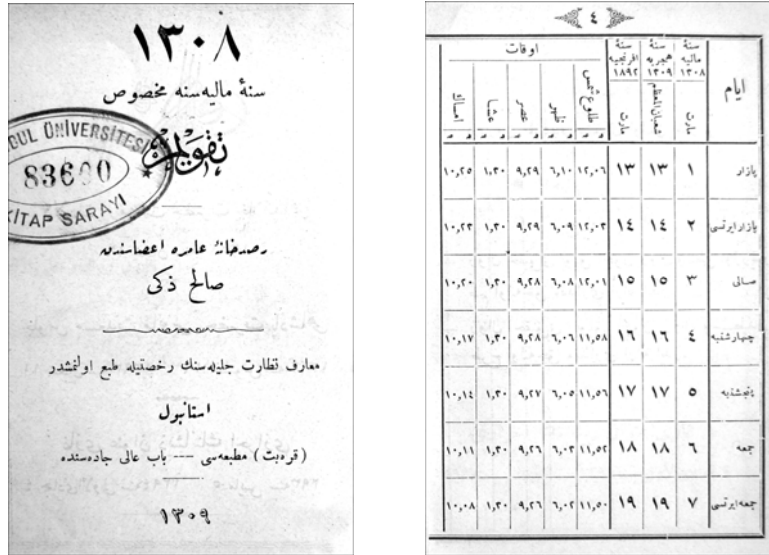 ١٣٠٨
سنهٔ ماليه‌سنه مخصوص
تقويم
İSTANBUL ÜNİVERSİTESİ
83600
KİTAP SARAYI
رصدخانهٔ عامره اعضاسندن
صالح ذكى
معارف نظارت جليله‌سنك رخصتيله طبع اولنمشدر
استانبول
(قره‌بت) مطبعه‌سى — باب عالى جاده‌سنده
١٣٠٩
٤
ايام سنهٔ ماليه ١٣٠٨ مارت سنهٔ هجريه ١٣٠٩ شعبان المعظم سنهٔ افرنجيه ١٨٩٢ مارت اوقات طلوع شمس ظهر عصر عشا امساك
پازار ١ ١٣ ١٣ ١٢,٠٦ ٦,١٠ ٩,٢٩ ١,٣٠ ١٠,٢٥
پازار ايرتسى ٢ ١٤ ١٤ ١٢,٠٣ ٦,٠٩ ٩,٢٩ ١,٣٠ ١٠,٢٣
صالى ٣ ١٥ ١٥ ١٢,٠١ ٦,٠٨ ٩,٢٨ ١,٣٠ ١٠,٢٠
چهارشنبه ٤ ١٦ ١٦ ١١,٥٨ ٦,٠٦ ٩,٢٨ ١,٣٠ ١٠,١٧
پنجشنبه ٥ ١٧ ١٧ ١١,٥٦ ٦,٠٥ ٩,٢٧ ١,٣٠ ١٠,١٤
جمعه ٦ ١٨ ١٨ ١١,٥٢ ٦,٠٣ ٩,٢٦ ١,٣٠ ١٠,١١
جمعه ايرتسى ٧ ١٩ ١٩ ١١,٥٠ ٦,٠٢ ٩,٢٦ ١,٣٠ ١٠,٠٨